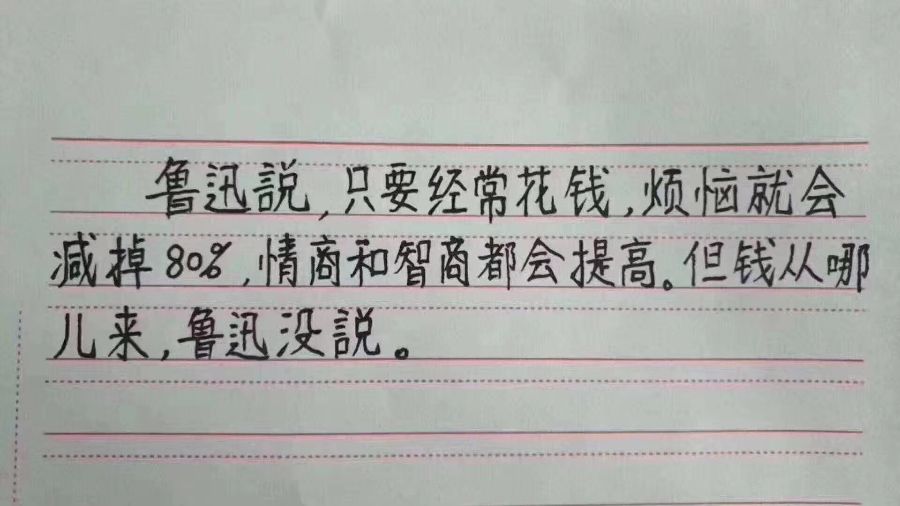 鲁迅説,只要经常花钱,烦恼就会
减掉80%,情商和智商都会提高。但钱从哪
儿来,鲁迅没説。